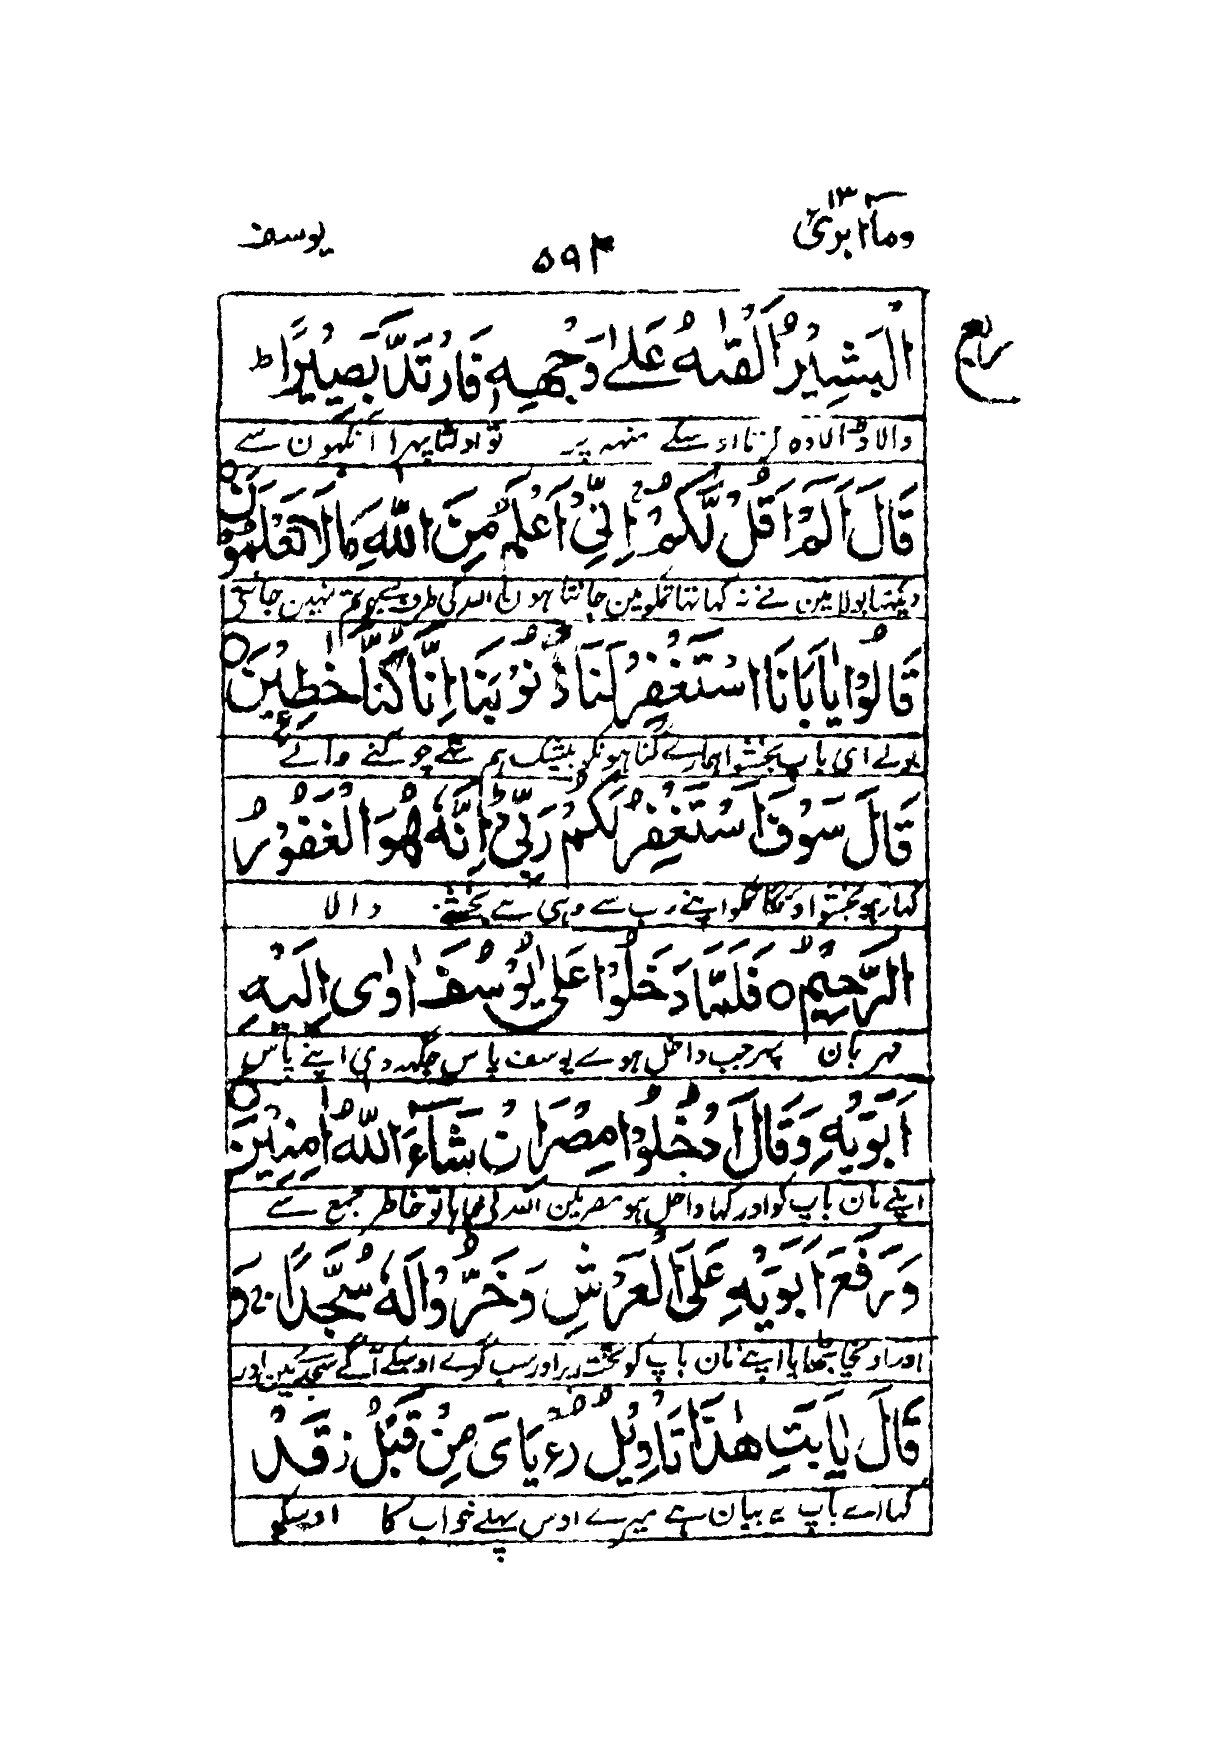 وما ابرئ ١٣
٥٩٤
يوسف
ربع
الْبَشِيْرُ اَلْقٰىهُ عَلٰى وَجْهِهٖ فَارْتَدَّ بَصِيْرًا ط
والا ڈالا وہ کرتا اوسکے منہہ پر تو اولٹا پہرا آنکہون سے
قَالَ اَلَمْ اَقُلْ لَّكُمْ اِنِّيْ اَعْلَمُ مِنَ اللّٰهِ مَا لَا تَعْلَمُوْنَ
دیکہتا بولا مین نے نہ کہا تہا تمکو مین جانتا ہون اللہ کی طرف سے جو تم نہین جانتے
قَالُوْا يٰاَبَانَا اسْتَغْفِرْ لَنَا ذُنُوْبَنَا اِنَّا كُنَّا خٰطِـِٕيْنَ
بولے ای باپ بخشوا ہمارے گناہونکو بیشک ہم تہے چوکنے والے
قَالَ سَوْفَ اَسْتَغْفِرُ لَكُمْ رَبِّيْ ط اِنَّهٗ هُوَ الْغَفُوْرُ
کہا رہو بخشواونگا تمکو اپنے رب سے وہی ہے بخشنے والا
الرَّحِيْمُ ○ فَلَمَّا دَخَلُوْا عَلٰى يُوْسُفَ اٰوٰى اِلَيْهِ
مہربان پہر جب داخل ہوے یوسف پاس جگہہ دی اپنے پاس
اَبَوَيْهِ وَقَالَ ادْخُلُوْا مِصْرَ اِنْ شَآءَ اللّٰهُ اٰمِنِيْنَ
اپنے مان باپ کو اور کہا داخل ہو مصر مین اللہ نے چاہا تو خاطر جمع سے
وَرَفَعَ اَبَوَيْهِ عَلَى الْعَرْشِ وَخَرُّوْا لَهٗ سُجَّدًا ج وَ
اور اونچا بٹھایا اپنے مان باپ کو تخت پر اور سب گرے اوسکے آگے سجدے مین اور
قَالَ يٰاَبَتِ هٰذَا تَاْوِيْلُ رُءْيَايَ مِنْ قَبْلُ ز قَدْ
کہا اے باپ یہ بیان ہے میرے اوس پہلے خواب کا اوسکو